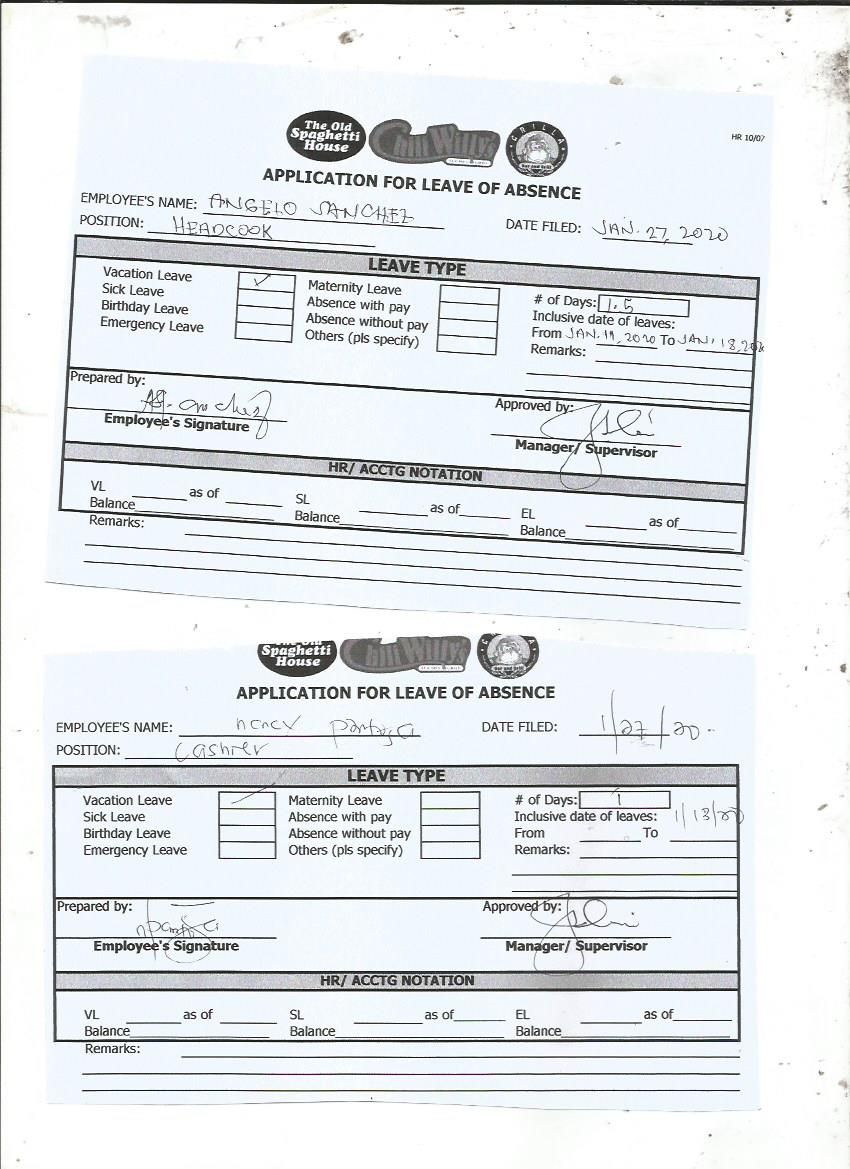 The Old
Spaghetti
House
Chill Willy's
GRILLA
Bar and Grill
HR 10/07
APPLICATION FOR LEAVE OF ABSENCE
EMPLOYEE'S NAME: ANGELO SANCHEZ
POSITION: HEADCOOK
DATE FILED: JAN. 27, 2020
LEAVE TYPE
Vacation Leave ✓
Sick Leave
Birthday Leave
Emergency Leave
Maternity Leave
Absence with pay
Absence without pay
Others (pls specify)
# of Days: 1.5
Inclusive date of leaves:
From JAN. 2020 To JAN. 18, 2020
Remarks:
Prepared by:
Employee's Signature
Approved by:
Manager/ Supervisor
HR/ ACCTG NOTATION
VL as of SL as of EL as of
Balance Balance Balance
Remarks:
The Old
Spaghetti
House
Chill Willy's
Bar and Grill
APPLICATION FOR LEAVE OF ABSENCE
EMPLOYEE'S NAME:
POSITION: Cashier
DATE FILED: 1/27/20.
LEAVE TYPE
Vacation Leave
Sick Leave
Birthday Leave
Emergency Leave
Maternity Leave
Absence with pay
Absence without pay
Others (pls specify)
# of Days: 1
Inclusive date of leaves: 1/13/20
From To
Remarks:
Prepared by:
Employee's Signature
Approved by:
Manager/ Supervisor
HR/ ACCTG NOTATION
VL as of SL as of EL as of
Balance Balance Balance
Remarks: